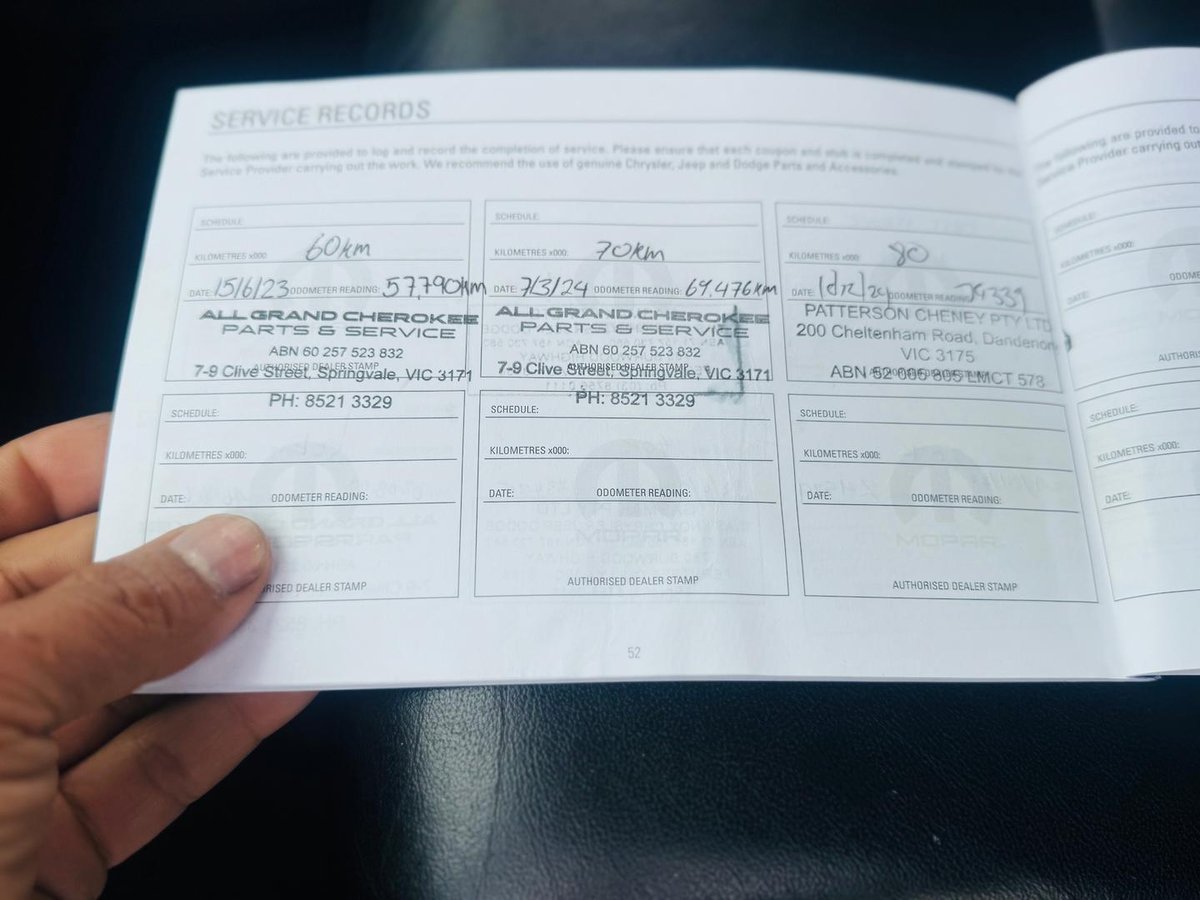 SERVICE RECORDS
The following are provided to log and record the completion of service. Please ensure that each coupon and stub is completed and stamped by the
Service Provider carrying out the work. We recommend the use of genuine Chrysler, Jeep and Dodge Parts and Accessories.
SCHEDULE:
KILOMETRES x000: 60km
DATE: 15/6/23 ODOMETER READING: 57,790km
ALL GRAND CHEROKEE
PARTS & SERVICE
ABN 60 257 523 832
AUTHORISED DEALER STAMP
7-9 Clive Street, Springvale, VIC 3171
PH: 8521 3329
SCHEDULE:
KILOMETRES x000: 70km
DATE: 7/3/24 ODOMETER READING: 69,476km
ALL GRAND CHEROKEE
PARTS & SERVICE
ABN 60 257 523 832
AUTHORISED DEALER STAMP
7-9 Clive Street, Springvale, VIC 3171
PH: 8521 3329
SCHEDULE:
KILOMETRES x000: 80
DATE: ODOMETER READING:
PATTERSON CHENEY PTY LTD
200 Cheltenham Road, Dandenong
VIC 3175
ABN LMCT 578
SCHEDULE:
KILOMETRES x000:
DATE: ODOMETER READING:
RISED DEALER STAMP
SCHEDULE:
KILOMETRES x000:
DATE: ODOMETER READING:
MOPAR
AUTHORISED DEALER STAMP
SCHEDULE:
KILOMETRES x000:
DATE: ODOMETER READING:
MOPAR
AUTHORISED DEALER STAMP
52
The following are provided to
Service Provider carrying out
SCHEDULE:
KILOMETRES x000:
DATE:
SCHEDULE:
KILOMETRES x000:
DATE: